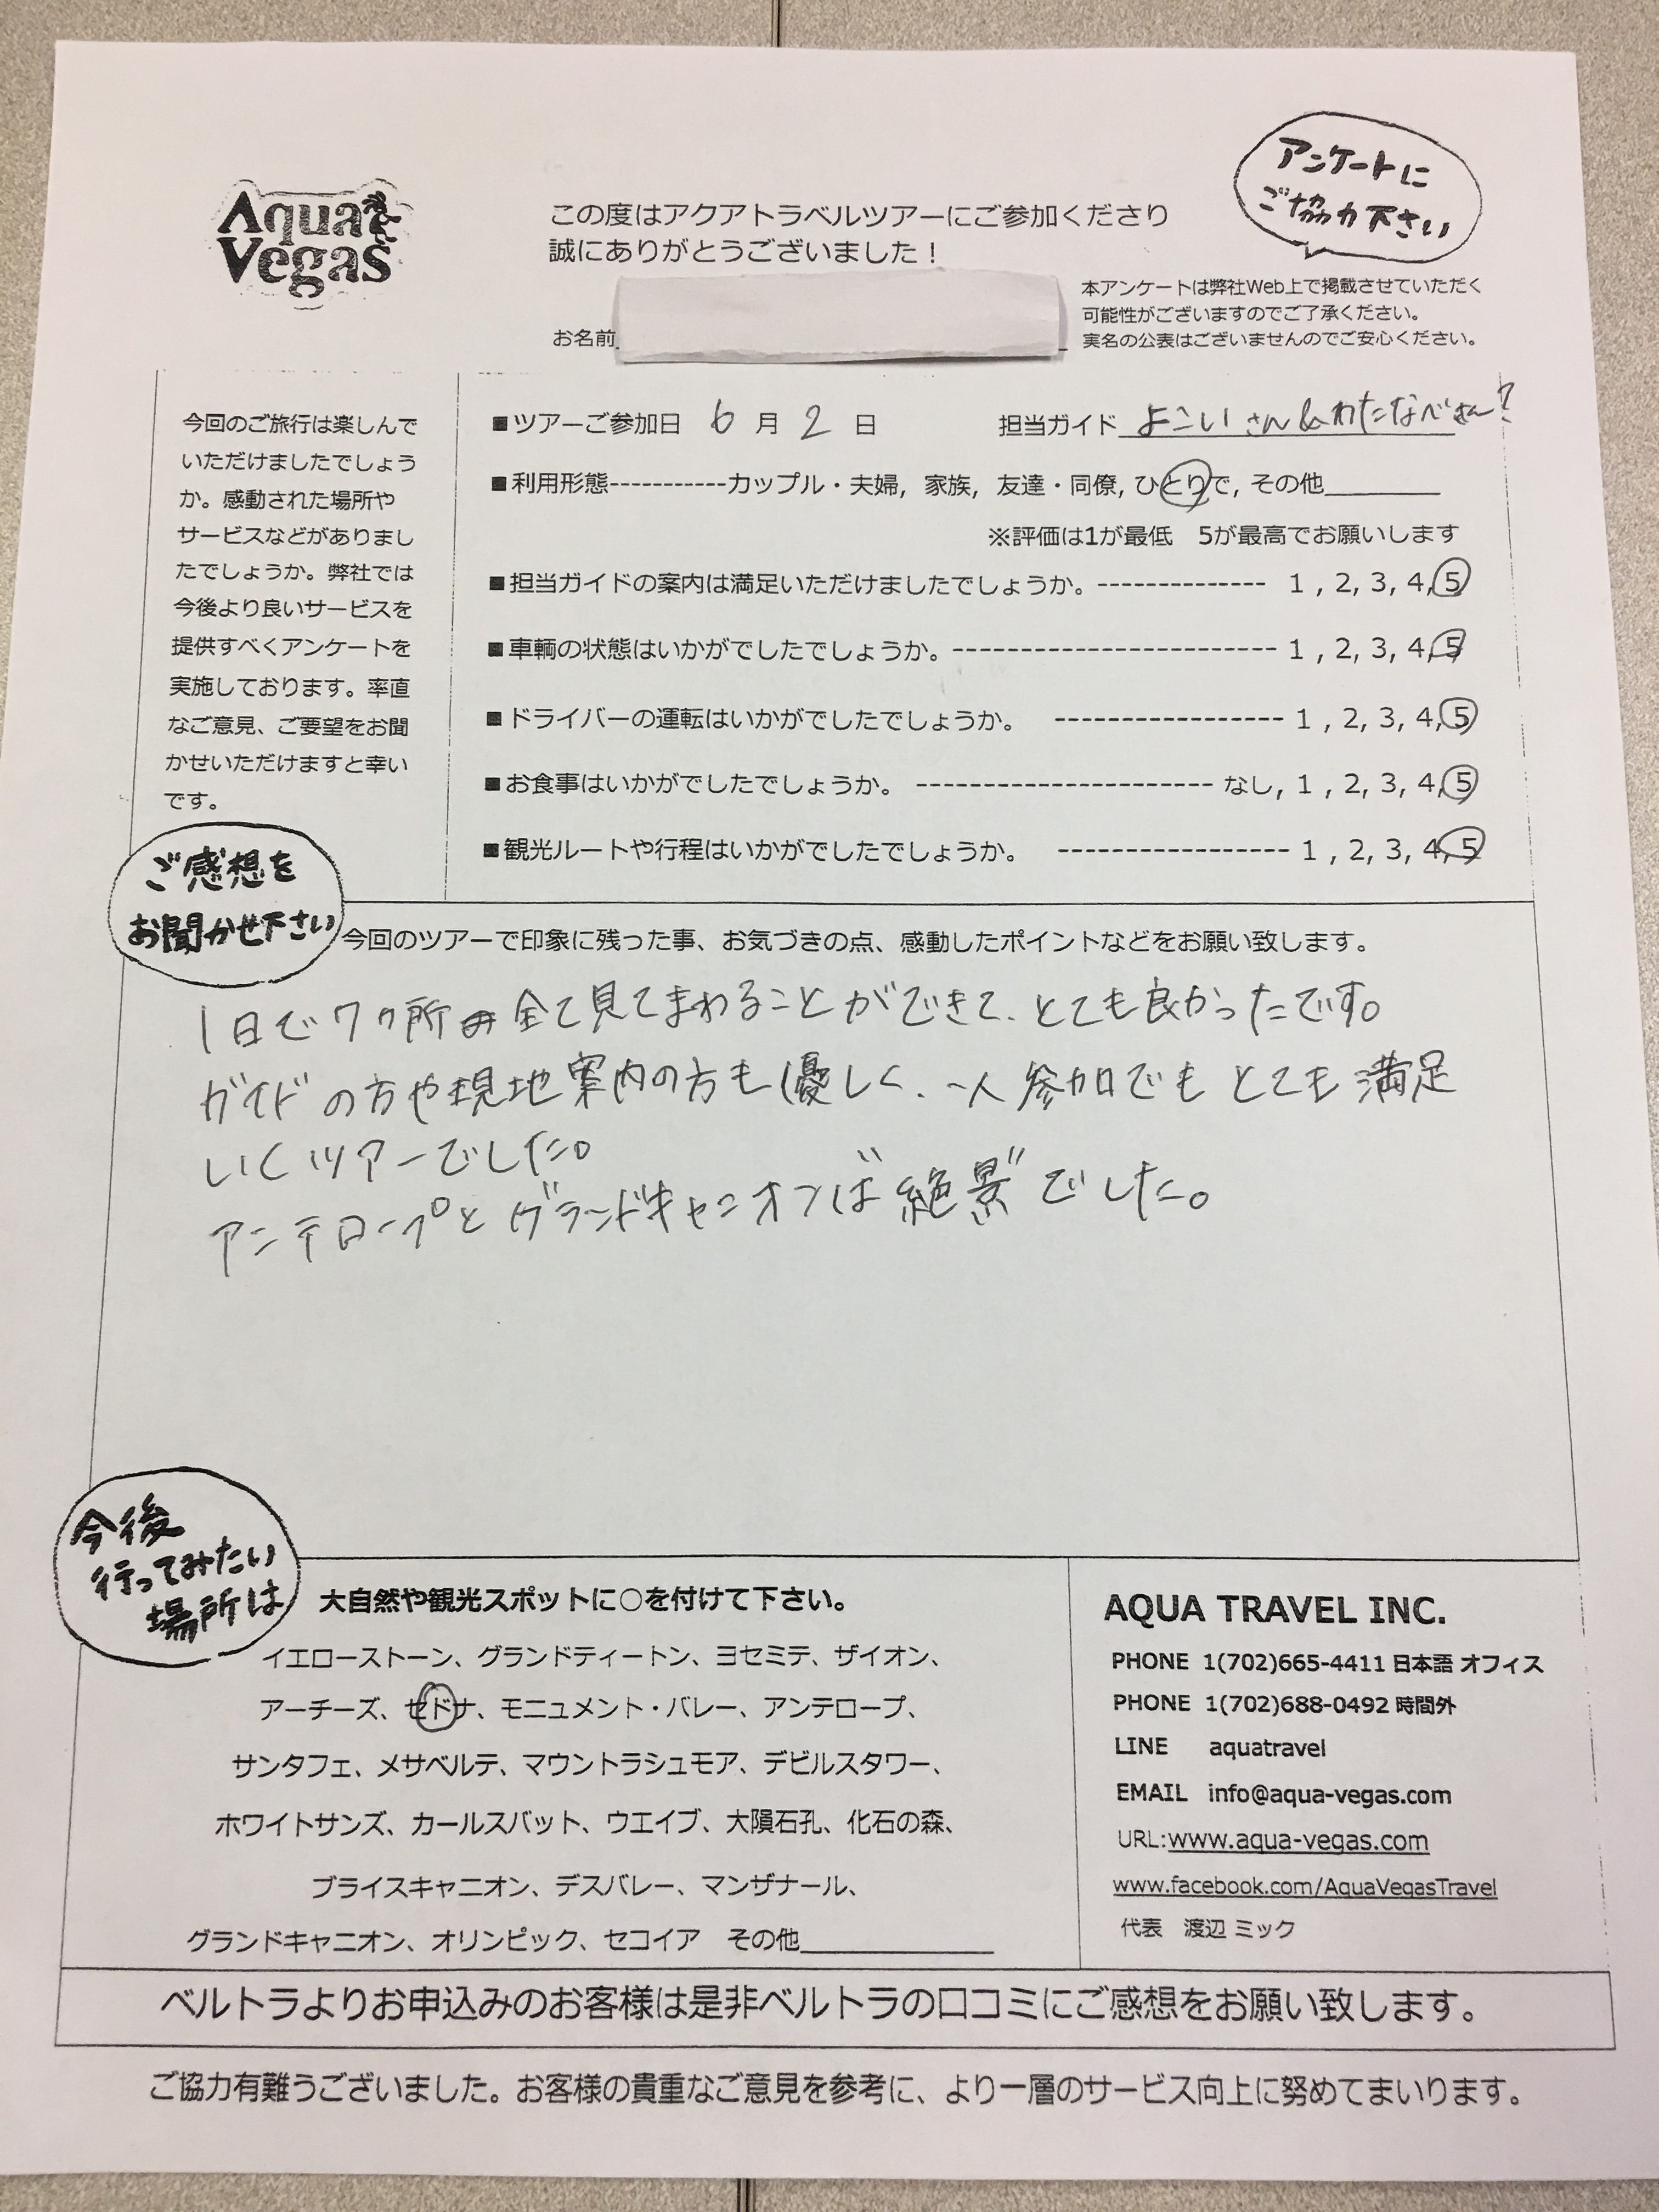 Aqua
Vegas
この度はアクアトラベルツアーにご参加くださり
誠にありがとうございました!
アンケートに
ご協力下さい
お名前
本アンケートは弊社Web上で掲載させていただく
可能性がございますのでご了承ください。
実名の公表はございませんのでご安心ください。
今回のご旅行は楽しんで
いただけましたでしょう
か。感動された場所や
サービスなどがありまし
たでしょうか。弊社では
今後より良いサービスを
提供すべくアンケートを
実施しております。率直
なご意見、ご要望をお聞
かせいただけますと幸い
です。
■ツアーご参加日 6 月 2 日 担当ガイド よこいさん&わたなべさん?
■利用形態-----------カップル・夫婦, 家族, 友達・同僚, ひとりで, その他________
※評価は1が最低 5が最高でお願いします
■担当ガイドの案内は満足いただけましたでしょうか。------------- 1 , 2, 3, 4, 5
■車輌の状態はいかがでしたでしょうか。------------------------- 1 , 2, 3, 4, 5
■ドライバーの運転はいかがでしたでしょうか。 ----------------- 1 , 2, 3, 4, 5
■お食事はいかがでしたでしょうか。 ---------------------- なし, 1 , 2, 3, 4, 5
■観光ルートや行程はいかがでしたでしょうか。 ----------------- 1 , 2, 3, 4, 5
ご感想を
お聞かせ下さい
今回のツアーで印象に残った事、お気づきの点、感動したポイントなどをお願い致します。
1日で7ヶ所全て見てまわることができて、とても良かったです。
ガイドの方や現地案内の方も優しく、一人参加でもとても満足
いくツアーでした。
アンテロープとグランドキャニオンは"絶景"でした。
今後
行ってみたい
場所は
大自然や観光スポットに○を付けて下さい。
イエローストーン、グランドティートン、ヨセミテ、ザイオン、
アーチーズ、セドナ、モニュメント・バレー、アンテロープ、
サンタフェ、メサベルテ、マウントラシュモア、デビルスタワー、
ホワイトサンズ、カールスバット、ウエイブ、大隕石孔、化石の森、
ブライスキャニオン、デスバレー、マンザナール、
グランドキャニオン、オリンピック、セコイア その他______________
AQUA TRAVEL INC.
PHONE 1(702)665-4411 日本語 オフィス
PHONE 1(702)688-0492 時間外
LINE aquatravel
EMAIL info@aqua-vegas.com
URL:www.aqua-vegas.com
www.facebook.com/AquaVegasTravel
代表 渡辺 ミック
ベルトラよりお申込みのお客様は是非ベルトラの口コミにご感想をお願い致します。
ご協力有難うございました。お客様の貴重なご意見を参考に、より一層のサービス向上に努めてまいります。